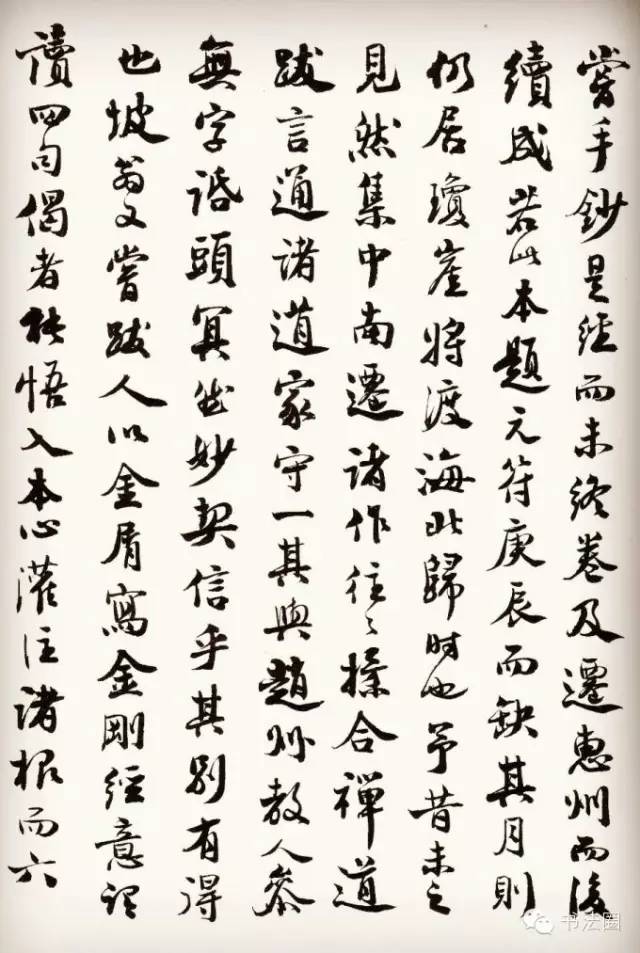 嘗手鈔是經而未終卷及遷惠州而後
續成若此本題元符庚辰而缺其月則
仍居瓊崖將渡海北歸時也予昔未之
見然集中南遷諸作往〻揉合禪道
跋言通諸道家守一其與趙州教人參
無字話頭冥然妙契信乎其別有得
也坡翁又嘗跋人以金屑寫金剛經意謂
讀四句偈者能悟入本心灌注諸根而六
书法圈